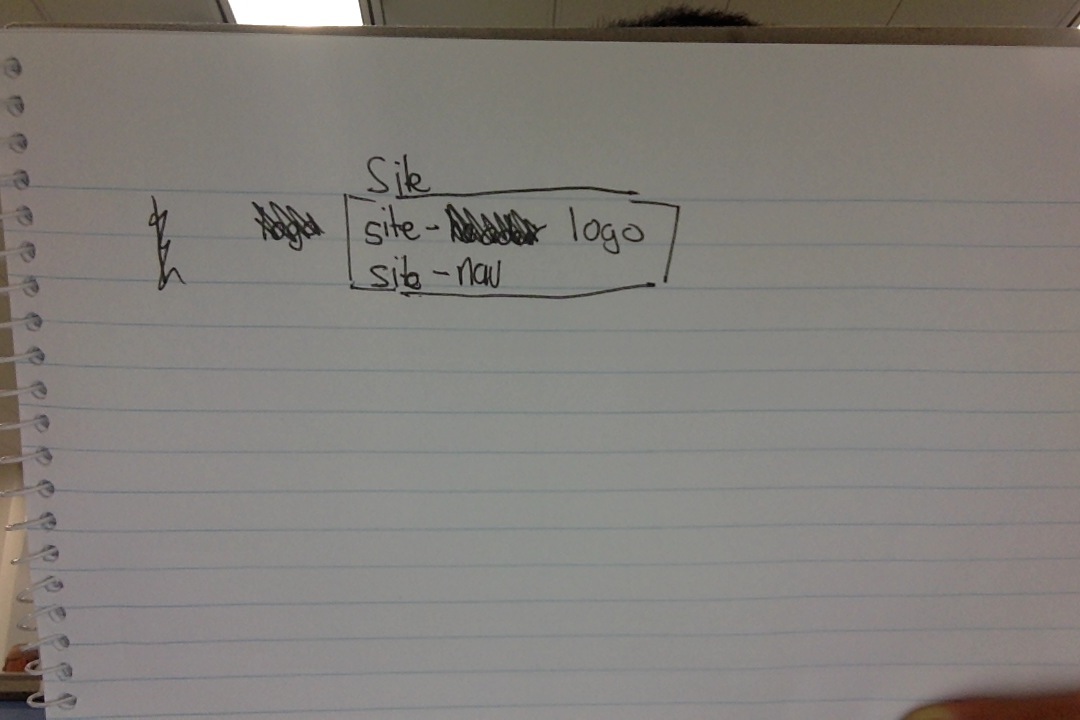 Site
site- logo
site-nav